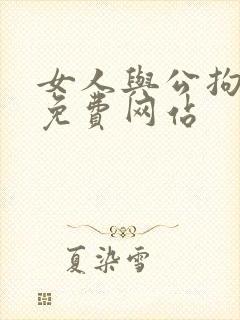 女人與公拘
免費网佔
夏染雪